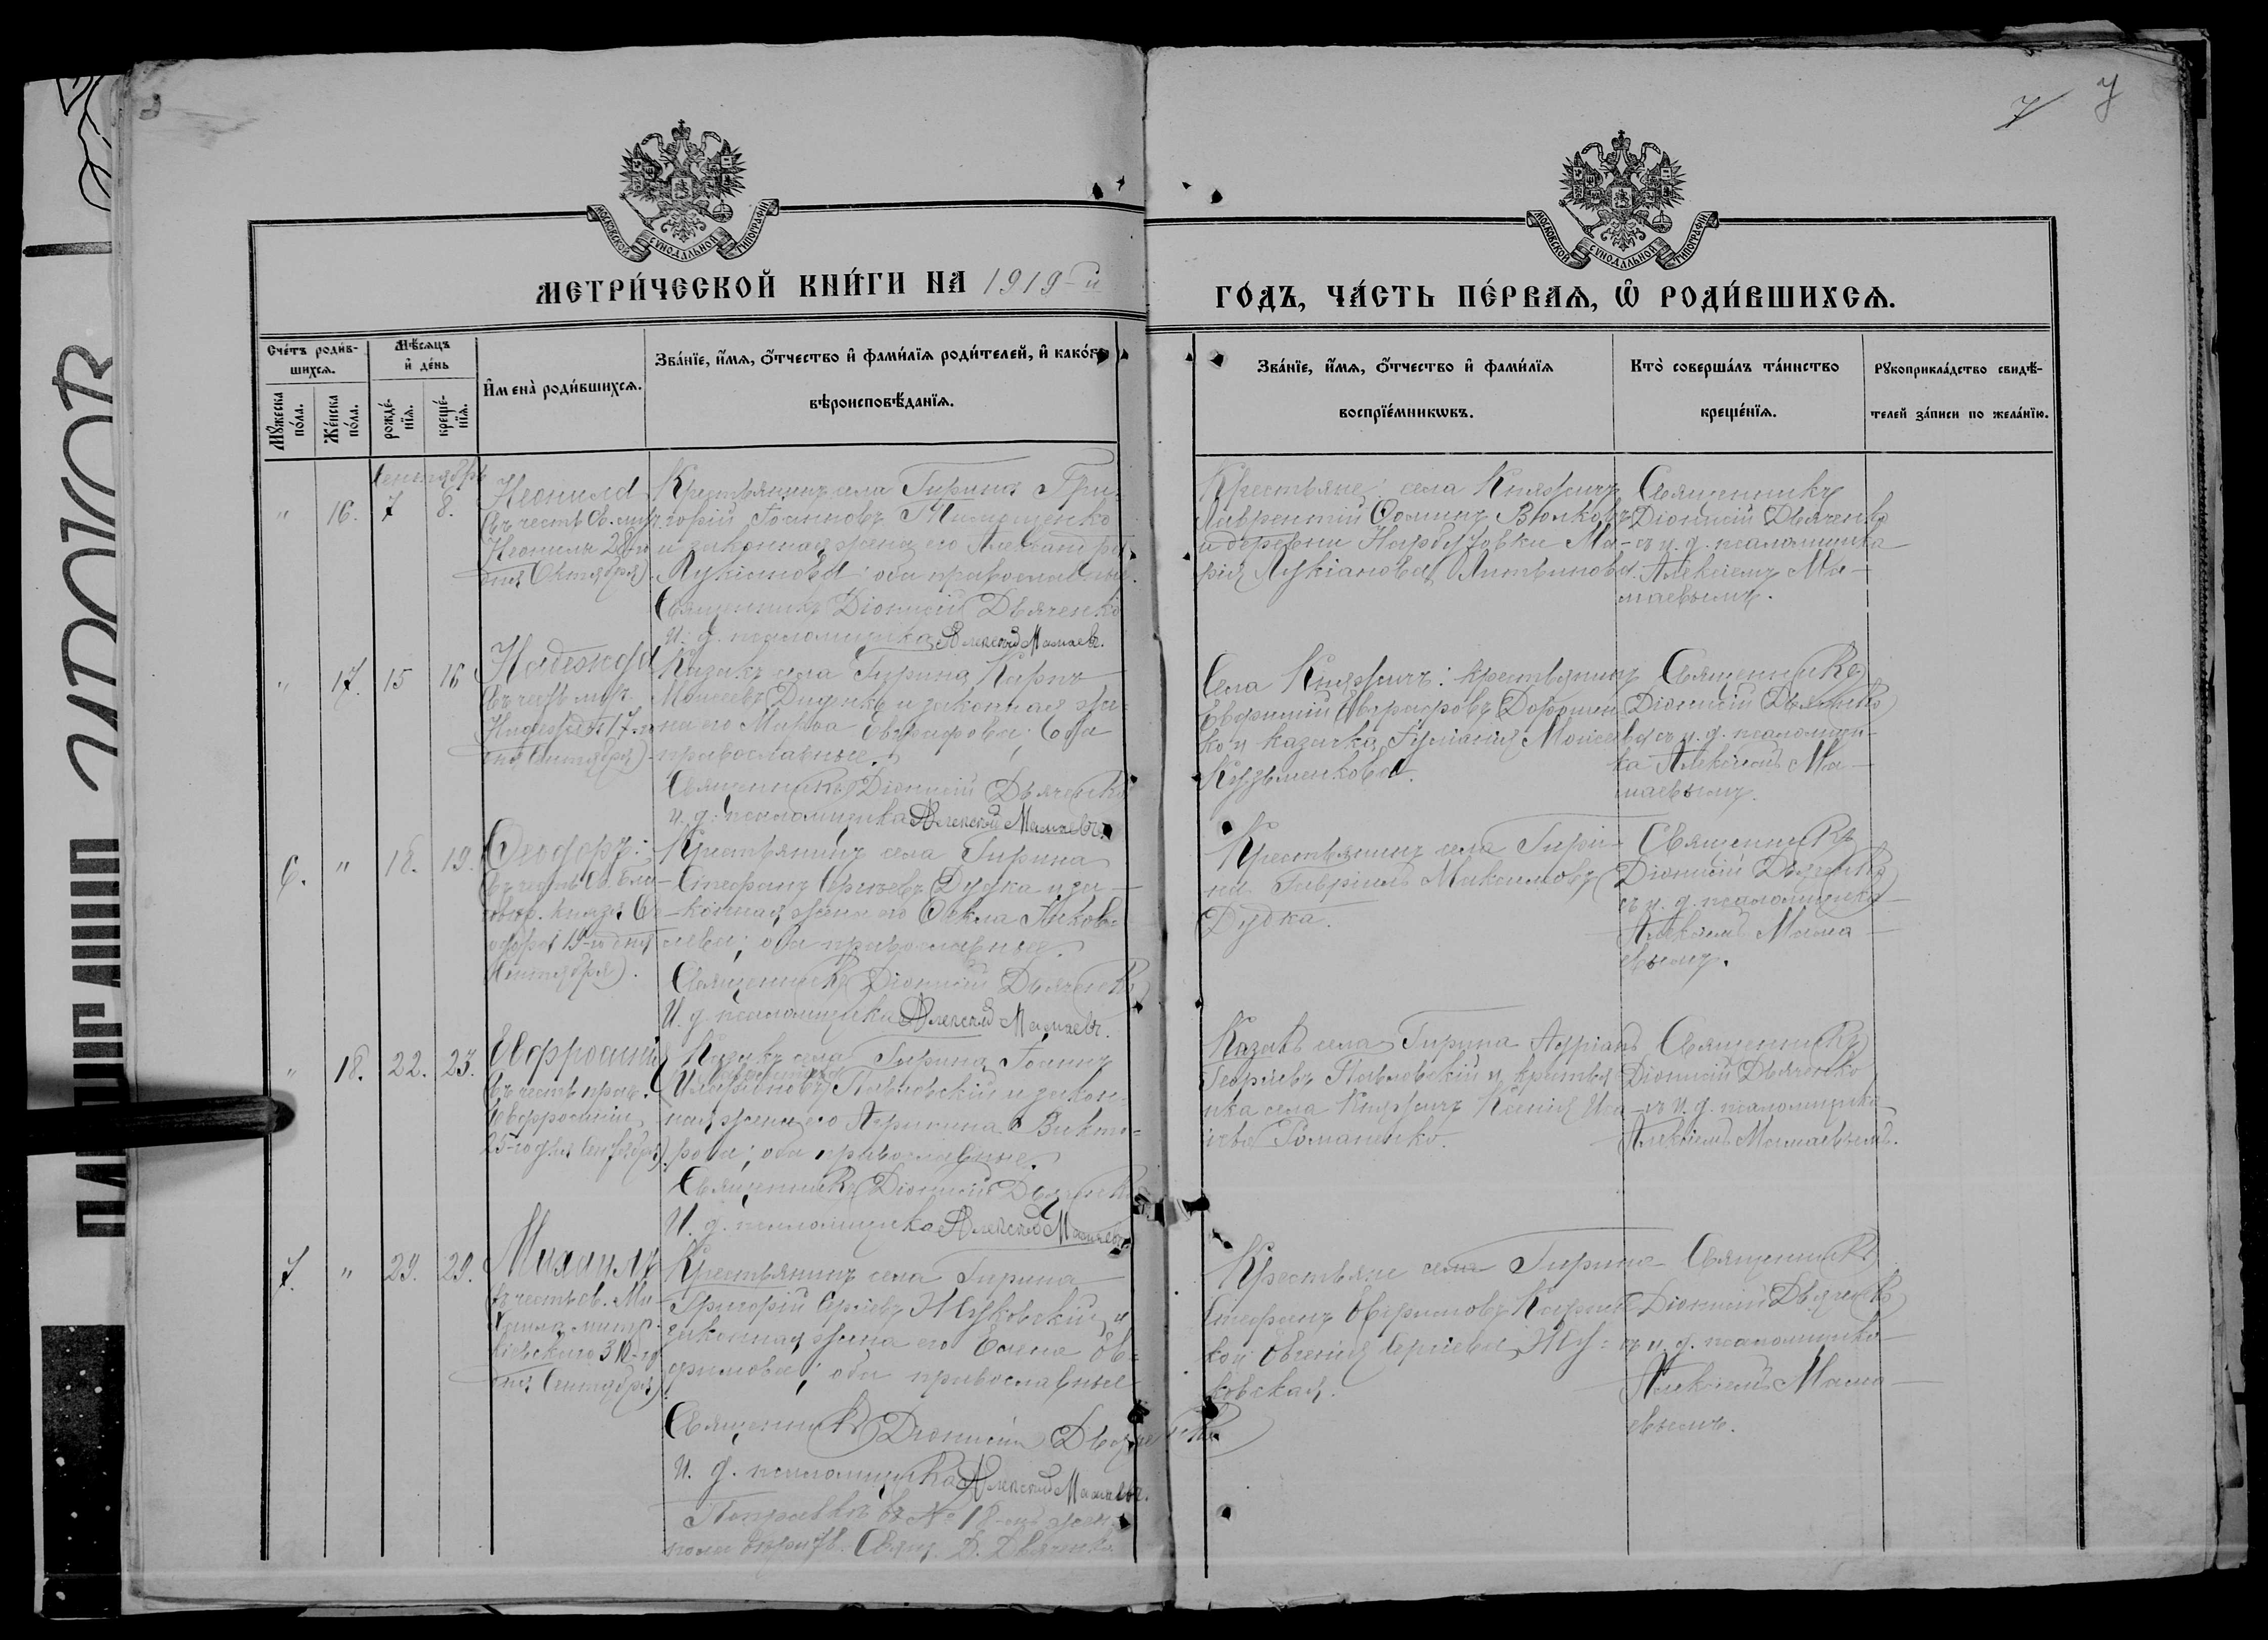 7 7
МОСКОВСКОЙ СѴНОДАЛЬНОЙ ТИПОГРАФІИ
МОСКОВСКОЙ СѴНОДАЛЬНОЙ ТИПОГРАФІИ
МЕТРИ́ЧЕСКОЙ КНИ́ГИ НА 1919-й
ГО́ДЪ, ЧА́СТЬ ПЕ́РВАЯ, Ѡ҆ РОДИ́ВШИХСЯ.
Сче́тъ роди́в-
шихся.
Мѣ́сяцъ
и҆ де́нь
Мꙋ́жеска
по́ла.
Же́нска
по́ла.
рожде́-
нїя.
креще́-
нїя.
И҆мена̀ роди́вшихся.
Зва́нїе, и҆́мя, ѻ҆́тчество и҆ фами́лїя роди́телей, и҆ како́гѡ
вѣроисповѣ́данїя.
Зва́нїе, и҆́мя, ѻ҆́тчество и҆ фами́лїя
воспрїе́мникѡвъ.
Кто̀ соверша́лъ та́инство
креще́нїя.
Рꙋкоприкла́дство свидѣ́-
телей за́писи по жела́нїю.
Сентябрь
" 16. 7 8.
Неонила
(въ честь Св. муч.
Неонилы 28-го
дня Октября).
Крестьянинъ села Гирина Гри-
горій Іоанновъ Тимошенко
и законная жена его Александра
Лукіанова; оба православные.
Священникъ Діонисій Дьяченко
И. д. псаломщика Алексѣй Мамаевъ.
Крестьяне: села Княжичъ
Лаврентій Ѳоминъ Волковъ
и деревни Нарбутовки Ма-
рія Лукіанова Литвинова.
Священникъ
Діонисій Дьяченко
съ и. д. псаломщика
Алексіемъ Ма-
маевымъ.
" 17. 15 16
Надежда
(въ честь муч.
Надежды 17-го
дня Сентября).
Казакъ села Гирина Карпъ
Моисеевъ Диденко и законная же-
на его Марѳа Евграфова; оба
православные.
Священникъ Діонисій Дьяченко
И. д. псаломщика Алексѣй Мамаевъ.
Села Княжичъ: крестьянинъ
Евфимій Евграфовъ Дорошен-
ко и казачка Гликерія Моисеева
Кузьменкова.
Священникъ
Діонисій Дьяченко
съ и. д. псаломщи-
ка Алексіемъ Ма-
маевымъ.
6. " 18. 19.
Ѳеодоръ
(въ честь Св. Бла-
говѣр. князя Ѳе-
одора 19-го дня
Сентября).
Крестьянинъ села Гирина
Стефанъ Сергѣевъ Дудка и за-
конная жена его Ѳекла Яковле-
лева; оба православные.
Священникъ Діонисій Дьяченко
И. д. псаломщика Алексѣй Мамаевъ.
Крестьянинъ села Гири-
на Гавріилъ Максимовъ
Дудка.
Священникъ
Діонисій Дьяченко
съ и. д. псаломщика
Алексіемъ Мама-
евымъ.
" 18. 22. 23.
Евфросинія
(въ честь преп.
Евфросиніи
25-го дня Сентября).
Казакъ села Гирина Іоаннъ
Павловскій и закон-
ная жена его Агрипина Викто-
рова; оба православные.
Священникъ Діонисій Дьяченко
И. д. псаломщика Алексѣй Мамаевъ.
Казакъ села Гирина Адріанъ
Георгіевъ Павловскій и крестья
нка села Княжичъ Ксенія Иса-
іева Романенко.
Священникъ
Діонисій Дьяченко
съ и. д. псаломщика
Алексіемъ Мамаевымъ.
7. " 29. 29.
Михаилъ
(въ честь св. Ми-
хаила митр.
Кіевскаго 30-го
дня Сентября)
Крестьянинъ села Гирина
Григорій Сергіевъ Жуковскій и
законная жена его Елена Ев-
фимова; оба православные
Священникъ Діонисій Дьяченко
И. д. псаломщика Алексѣй Мамаевъ.
Поправкѣ въ № 18-мъ жен.
пола вѣрить. Свящ. Д. Дьяченко
Крестьяне села Гирина
Стефанъ Евфимовъ
Евгенія Сергіева Жу-
ковская.
Священникъ
Діонисій Дьяченко
съ и. д. псаломщика
Алексіемъ Мама-
евымъ.